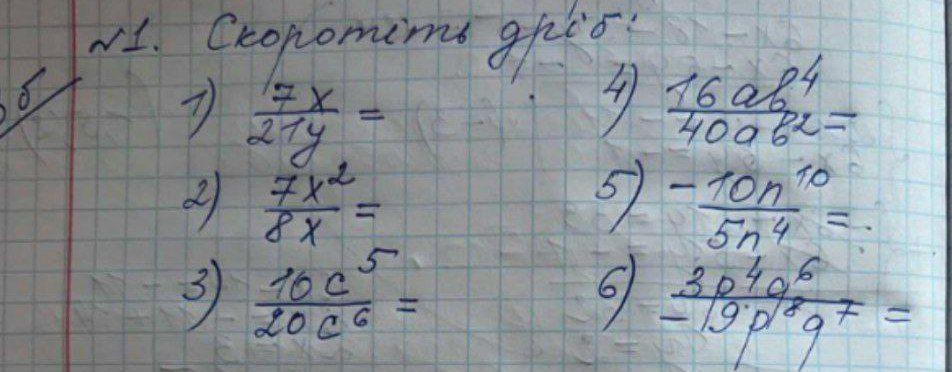 №1. Скоротіть дріб:
1) 7x/21y =
2) 7x²/8x =
3) 10c⁵/20c⁶ =
4) 16ab⁴/40ab² =
5) -10n¹⁰/5n⁴ =
6) 3p⁴q⁶/-9p⁸q⁷ =